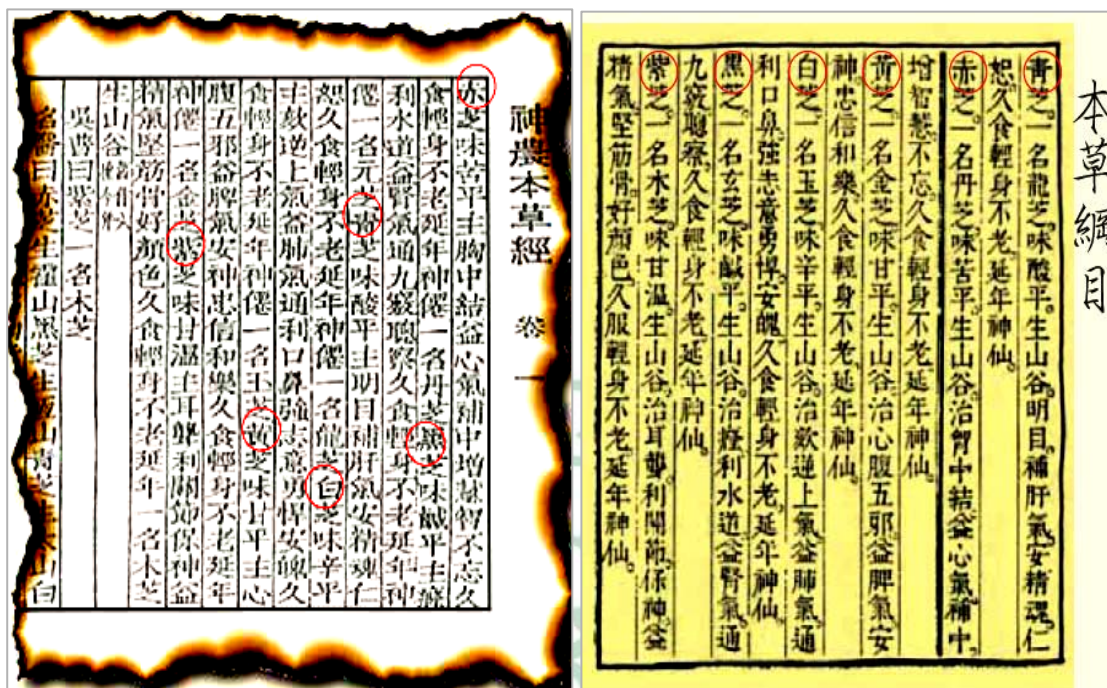 神農本草經 卷一
赤芝味苦平主胸中結益心氣補中增慧智不忘久
食輕身不老延年神僊一名丹芝黑芝味鹹平主癃
利水道益腎氣通九竅聰察久食輕身不老延年神
僊一名元芝青芝味酸平主明目補肝氣安精魂仁
恕久食輕身不老延年神僊一名龍芝白芝味辛平
主欬逆上氣益肺氣通利口鼻強志意勇悍安魄久
食輕身不老延年神僊一名玉芝黃芝味甘平主心
腹五邪益脾氣安神忠信和樂久食輕身不老延年
神僊一名金芝紫芝味甘溫主耳聾利關節保神益
精氣堅筋骨好顏色久食輕身不老延年一名木芝
生山谷
吳普曰紫芝一名木芝
名醫曰赤芝生霍山黑芝生山青芝生山白
本草綱目
青芝一名龍芝。味酸平。生山谷。明目。補肝氣。安精魂。仁
恕。久食輕身不老。延年神仙。
赤芝。一名丹芝。味苦平。生山谷。治胷中結。益心氣。補中。
增智慧。不忘。久食輕身不老。延年神仙。
黃芝。一名金芝。味甘平。生山谷。治心腹五邪。益脾氣。安
神。忠信和樂。久食輕身不老。延年神仙。
白芝。一名玉芝。味辛平。生山谷。治欬逆上氣。益肺氣。通
利口鼻。強志意。勇悍。安魄。久食輕身不老。延年神仙。
黑芝。一名玄芝。味鹹平。生山谷。治癃。利水道。益腎氣。通
九竅。聰察。久食輕身不老。延年神仙。
紫芝。一名木芝。味甘溫。生山谷。治耳聾。利關節。保神。益
精氣。堅筋骨。好顏色。久服輕身不老。延年神仙。